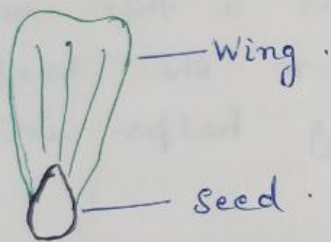 Wing .
Seed .